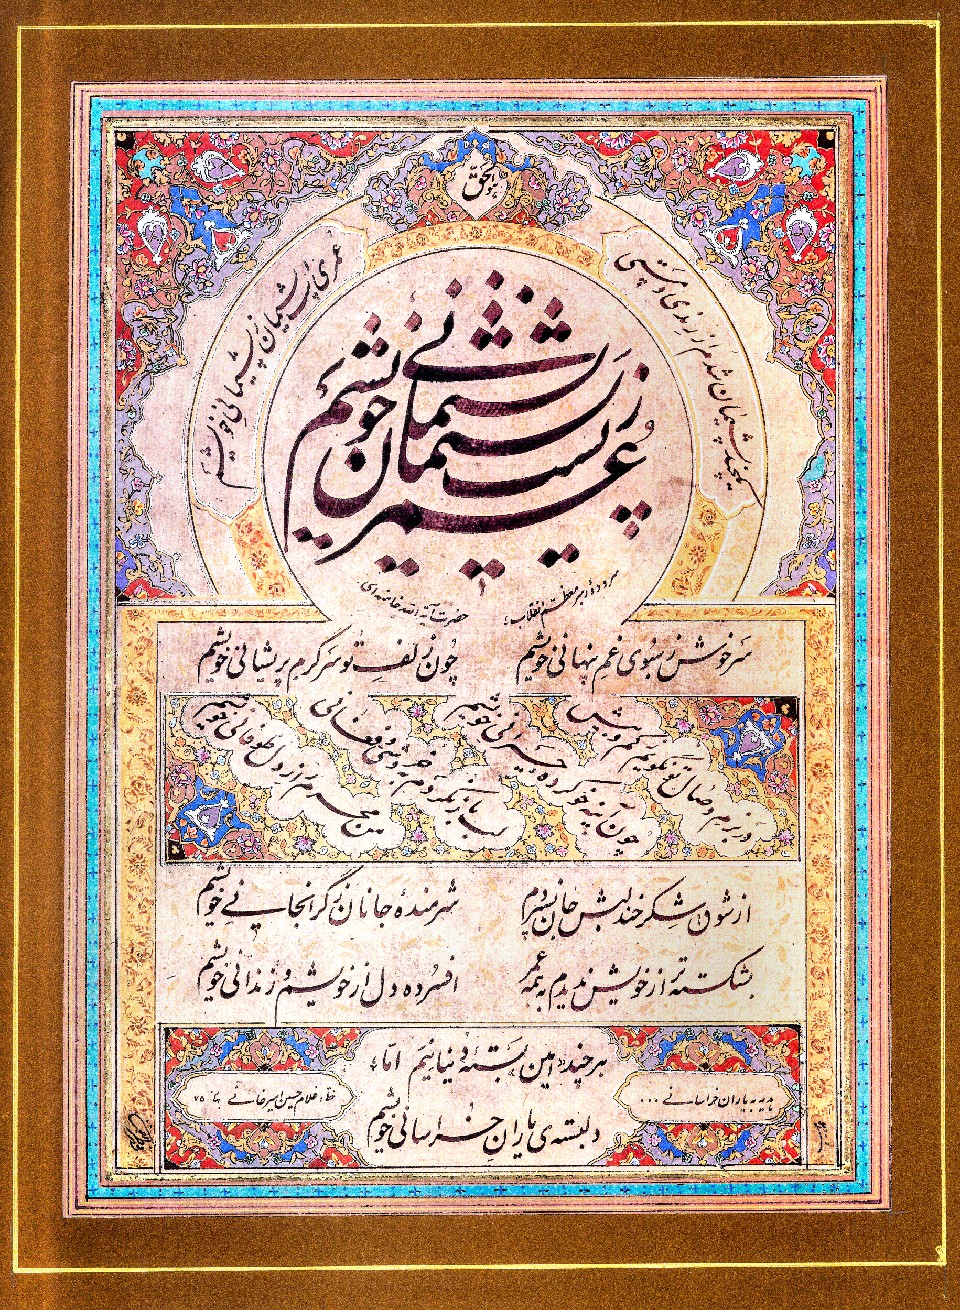 هوالحق
یکچند پشیمان شدم از رندی و مستی
عمری‌ست پشیمان ز پشیمانی خویشم
عمریست پشیمان ز پشیمانی خویشم
سروده رهبر معظم انقلاب؛
حضرت آیة الله خامنه‌ای
سرخوش ز سبوی غم پنهانی خویشم
چون زلف تو سرگرم پریشانی خویشم
در بزم وصال تو نگویم ز کم و بیش
چون آینه خو کرده به حیرانی خویشم
لب باز نکردم به خروشی و فغانی
من محرم راز دل طوفانی خویشم
از شوق شکرخند لبش جان نسپردم
شرمندۀ جانان ز گرانجانی خویشم
بشکسته‌تر از خویش ندیدم به همه عمر
افسرده دل از خویشم و زندانی خویشم
هر چند «امین» بستۀ دنیا نیم امّا
دلبسته‌ی یاران خراسانی خویشم
هدیه به یاران خراسانی ...
خط: غلامحسین امیرخانی بهار ۷۵